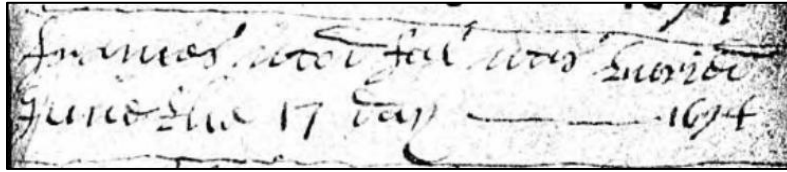 frances was buried
June the 17 day — 1694